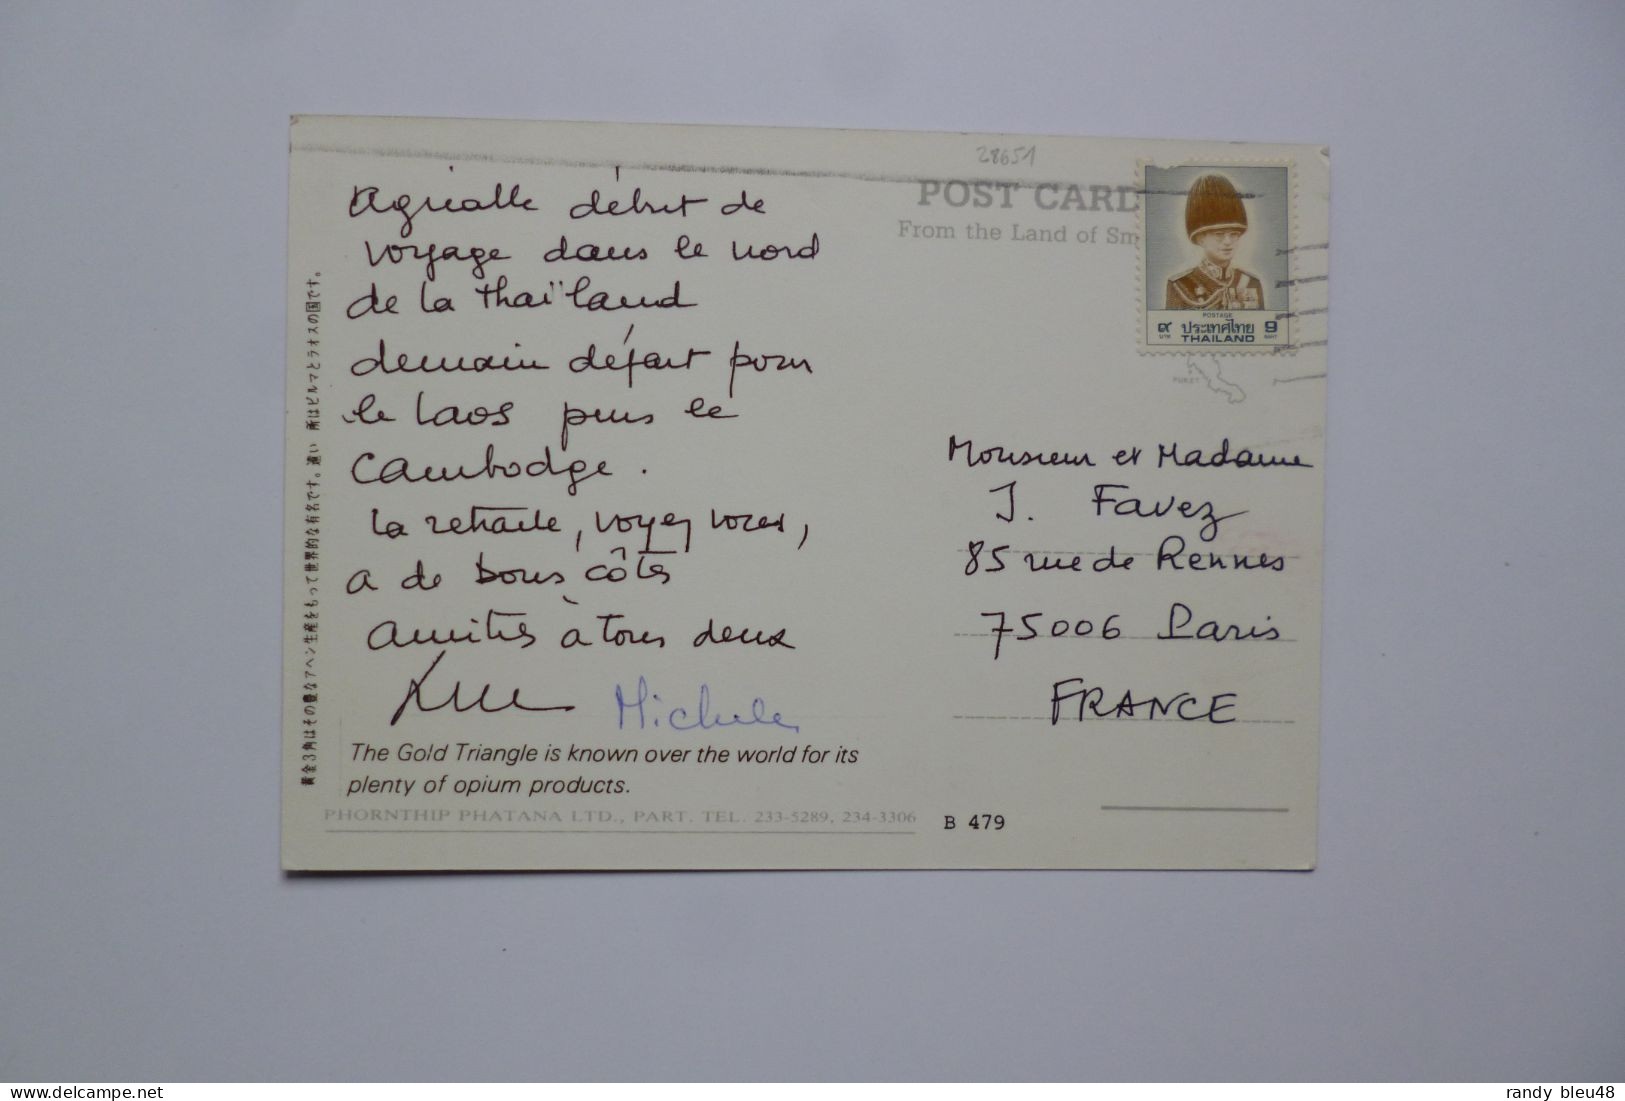 28651
POST CARD
From the Land of Sm
Agréable début de
voyage dans le nord
de la thaïland
demain départ pour
le Laos puis le
Cambodge.
La retraite, voyez vous,
a de bons côtés
Amitiés à tous deux
Michele
The Gold Triangle is known over the world for its
plenty of opium products.
PHORNTHIP PHATANA LTD., PART. TEL. 233-5289, 234-3306
B 479
黄金3角はその豊なアヘン生産をもって世界的な有名です。遠い 所はビルマとラオスの国です。
POSTAGE
๙ ประเทศไทย 9
บาท THAILAND BAHT
PUKET
Monsieur et Madame
J. Favez
85 rue de Rennes
75006 Paris
FRANCE
delcampe.net
randy bleu48